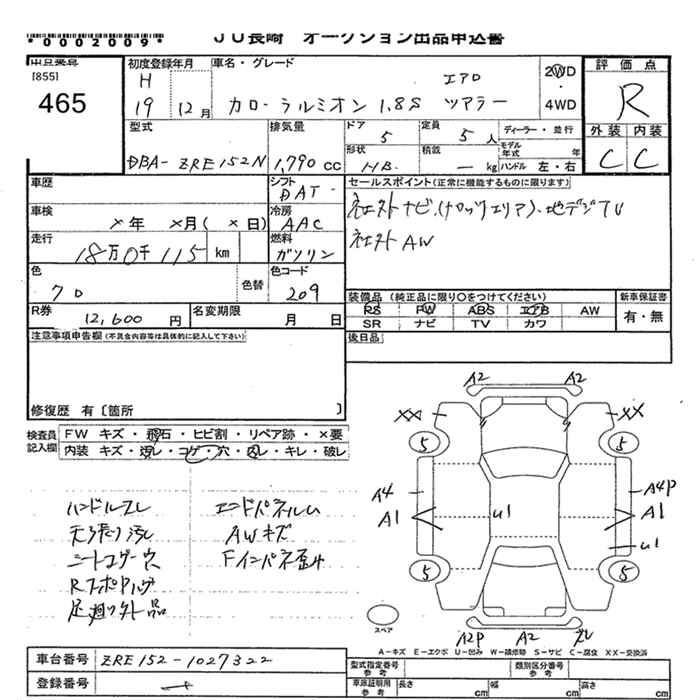 *0002009*
JU長崎 オークション出品申込書
[855]
465
初度登録年月
H
19 12月
車名・グレード
エアロ
カローラルミオン 1.8S ツアラー
2WD
4WD
評価点
R
外装 内装
C C
型式
DBA- ZRE152N
排気量
1,790 cc
ドア
5
定員
5 人
ディーラー・並行
モデル年式 年
形状
HB
積載
— kg
ハンドル 左・右
車歴
シフト
DAT
セールスポイント(正常に機能するものに限ります)
社外ナビ.(ナロッソエリア).地デジTV
社外AW
車検
×年 ×月( ×日)
冷房
AAC
走行
18万0千115 km
燃料
ガソリン
色
クロ
色替
色コード
209
装備品(純正品に限り○をつけてください)
新車保証書
有・無
PS PW ABS エアB AW
SR ナビ TV カワ
R券
12,600 円
名変期限
月 日
後日品
注意事項申告欄(不具合内容等は具体的に記入して下さい)
修復歴 有〔箇所 〕
検査員記入欄
FW キズ・飛石・ヒビ割・リペア跡・×要
内装 キズ・汚レ・コゲ・穴・凹レ・キレ・破レ
ハンドルスレ
天張り汚レ
シートコゲ・穴
足廻り外品
エンドパネルU
AWキズ
Fインパネ歪み
A2 A2
XX XX
5 5
A4 A4P
A1 U1 A1
U1
5 5
スペア
A2P A2 ズレ
A−キズ E−エクボ U−凹み W−補修跡 S−サビ C−腐食 XX−交換済
車台番号
ZRE152-1027322
登録番号
型式指定番号 参考
類別区分番号 参考
車庫証明用 参考
長さ cm
幅 cm
高さ cm